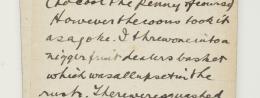 (to cool the penny of course)
However the coons took it
as a joke. I threw one into a
nigger fruit dealers basket
which was all upset in the
rush. There were squashed